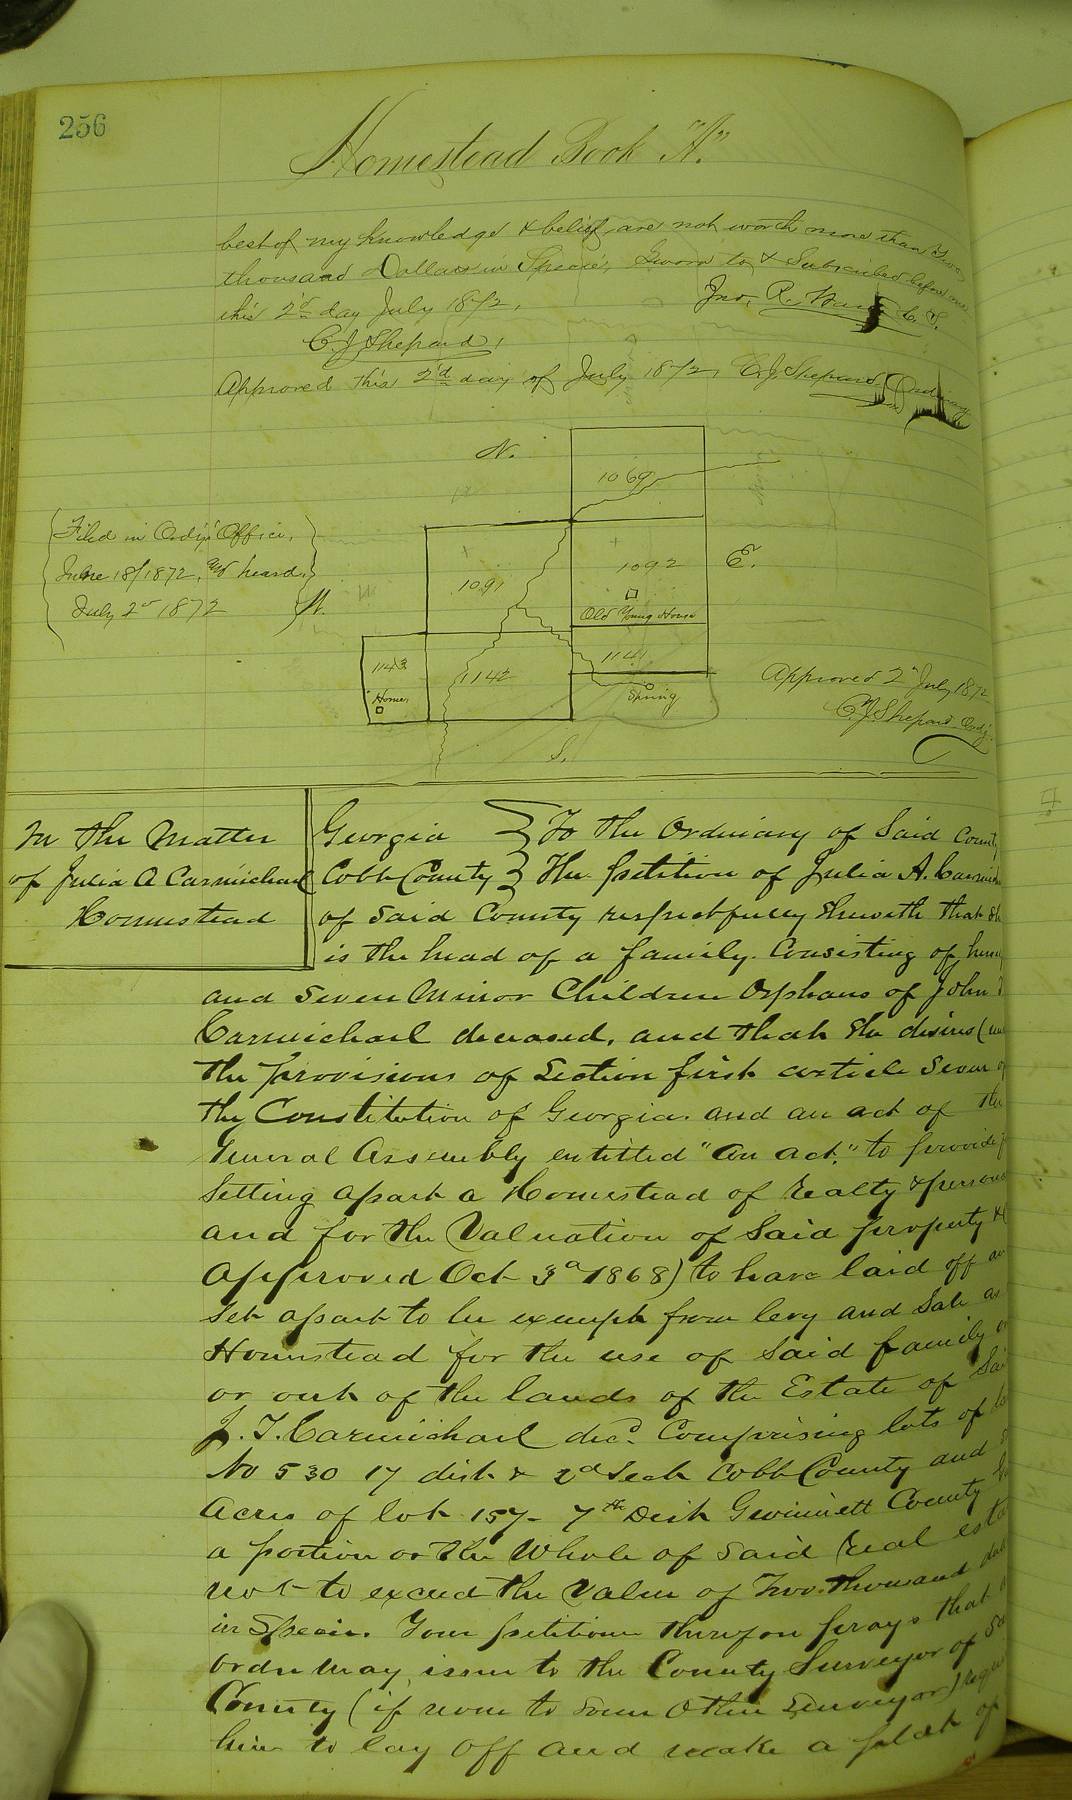 256
Homestead Book "A."
best of my knowledge & belief, are not worth more than Two
thousand Dollars in Specie, Sworn to & Subscribed before me
this 2d day July 1872, Jno. R. C. S.
C. J. Shepard,
Approved this 2d day of July 1872, C. J. Shepard Ordinary
N.
1069
Filed in Ordy's Office,
June 18/1872, and heard,
July 2d 1872
W.
1091
1092
E.
Old Young House
1143
Home,
1142
1141
Spring
S.
Approved 2d July, 1872
C. J. Shepard Ordy.
In the Matter
of Julia A Carmichael
Homestead
Georgia } To the Ordinary of Said County
Cobb County } The petition of Julia A. Carmich
of Said County respectfully sheweth that sh
is the head of a family. Consisting of hers
and Seven Minor Children Orphans of John T
Carmichael deceased, and that she desires (un
the provisions of Section first article Seven of
the Constitution of Georgia. and an act of the
General Assembly entitled "An act," to provide f
Setting apart a Homestead of realty & persona
and for the Valuation of Said property &
approved Oct 3d 1868) to have laid off an
set apart to be exempt from levy and Sale as
Homestead for the use of Said family
or out of the lands of the Estate of Sai
J. T. Carmichael decd. Comprising lots of
No 530 17 dist & 2d Sect Cobb County and
Acres of lot 157- 7th Dist Gwinnett County
a portion or the Whole of Said Real esta
not to exceed the Value of Two thousand dol
in Specie. Your petitioner therefore prays that
order may issue to the County Surveyor of Sa
County (if none to Some Other Surveyor) requ
him to lay off and make a plat of